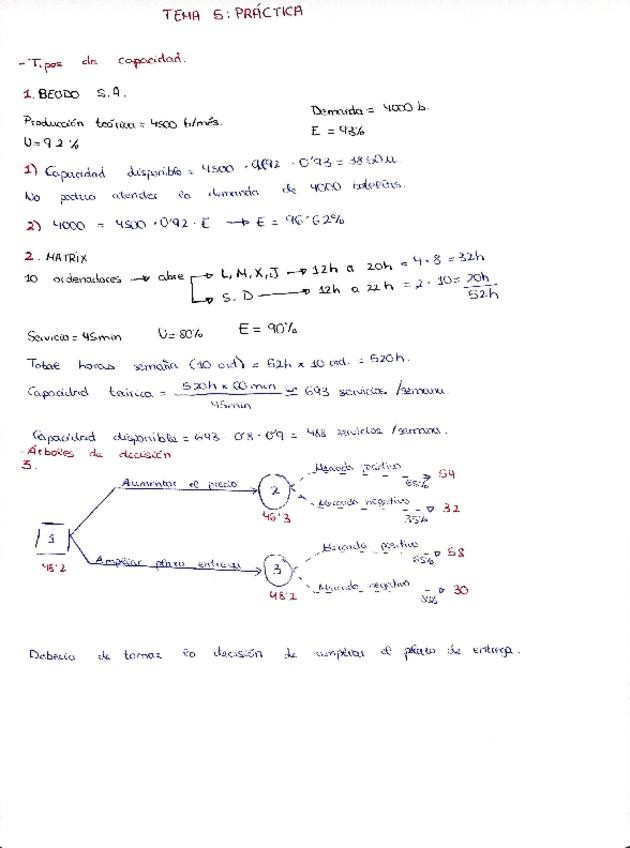 TEMA 5: PRÁCTICA
- Tipos de capacidad.
1. BEODO S.A.
Producción teórica = 4500 b/més. Demanda = 4000 b.
U = 92% E = 93%
1) Capacidad disponible = 4500 · 0'92 · 0'93 = 3850 u.
No podría atender la demanda de 4000 botellas.
2) 4000 = 4500 · 0'92 · E → E = 96'62%
2. MATRIX
10 ordenadores → abre → L, M, X, J → 12h a 20h = 4 · 8 = 32h
→ S, D → 12h a 22h = 2 · 10 = 20h
52h
Servicio = 45min U = 80% E = 90%
Total horas semana (10 ord) = 52h x 10 ord. = 520h.
Capacidad teórica = 520h x 60 min / 45min = 693 servicios /semana.
Capacidad disponible = 693 · 0'8 · 0'9 = 488 servicios /semana.
- Árboles de decisión
3.
Mercado positivo 65% 54
Aumentar el precio 2
Mercado negativo 35% 32
46'3
1
48'2
Mercado positivo 65% 58
Ampliar plazo entrega 3
Mercado negativo 35% 30
48'2
Debería de tomar la decisión de ampliar el plazo de entrega.